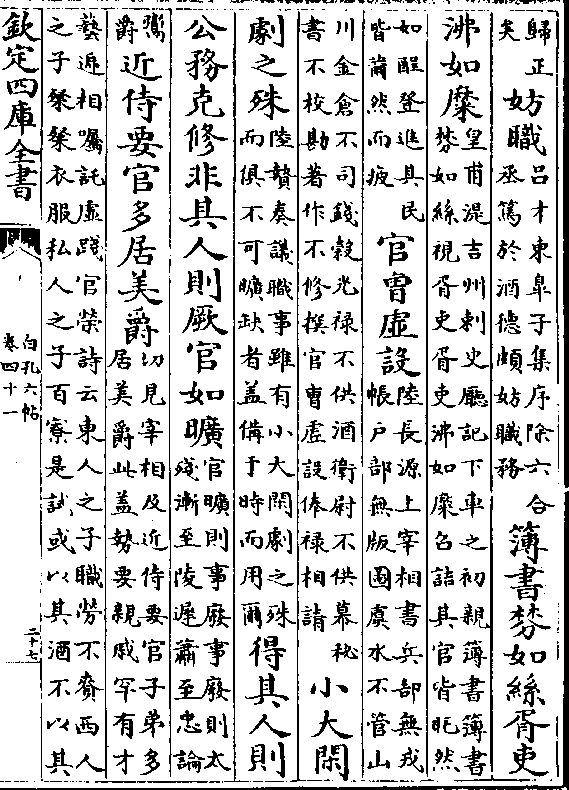 歸正
矣
妨職
呂才東臯子集序除六合
丞篤於酒德頗妨職務
簿書棼如絲胥吏
沸如糜
皇甫湜吉州刺史廳記下車之初親簿書簿書
棼如絲視胥吏胥吏沸如糜召詰其官皆然
如酲登進其民
皆薾然而疲
官曹虛設
陸長源上宰相書兵部無戎
帳戶部無版圖虞水不管山
川金倉不司錢穀光禄不供酒衛尉不供幕秘
書不校勘著作不修撰官曹虛設俸禄相請
小大閑
劇之殊
陸贄奏議職事雖有小大閑劇之殊
而俱不可曠缺者蓋備于時而用爾
得其人則
公務克修非其人則厥官如曠
官曠則事廢事廢則太
殘漸至陵遲蕭至忠論
爵
近侍要官多居美爵
切見宰相及近侍要官子弟多
居美爵此蓋勢要親戚罕有才
藝遞相囑託虛踐官榮詩云東人之子職勞不賚西人
之子粲粲衣服私人之子百寮是試或以其酒不以其
欽定四庫全書
白孔六帖
卷四十一
二十七